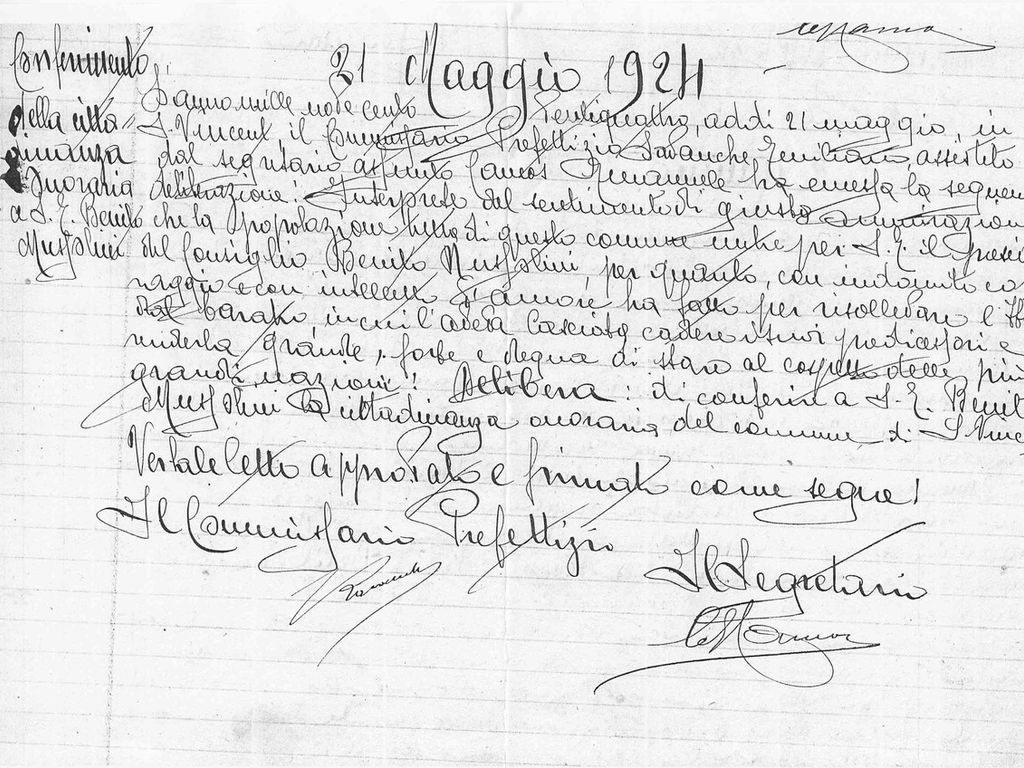 21 Maggio 1924
Conferimento
della citta=
dinanza
Onoraria
a S. E. Benito
Mussolini
L'anno mille nove cento ventiquattro, addì 21 maggio, in
S. Vincent il Commissario Prefettizio Savanche Emiliano, assistito
dal segretario assunto Emanuele ha emessa la seguen
deliberazione: Interprete del sentimento di giusta ammirazion
che la popolazione tutta di questo comune nutre per S. E. il Presi
del Consiglio Benito Mussolini, per quanto, con indomito co
raggio e con intelletto d'amore ha fatto per risollevare l'It
dal baratro, in cui l'aveva lasciata cadere i suoi predicessori e
renderla grande, forte e degna di stare al cospetto delle più
grandi nazioni! Delibera: di conferire a S. E. Benit
Mussolini la cittadinanza onoraria del comune di S. Vince
Verbale letto approvato e firmato come segue!
Il Commissario Prefettizio
Il Segretario